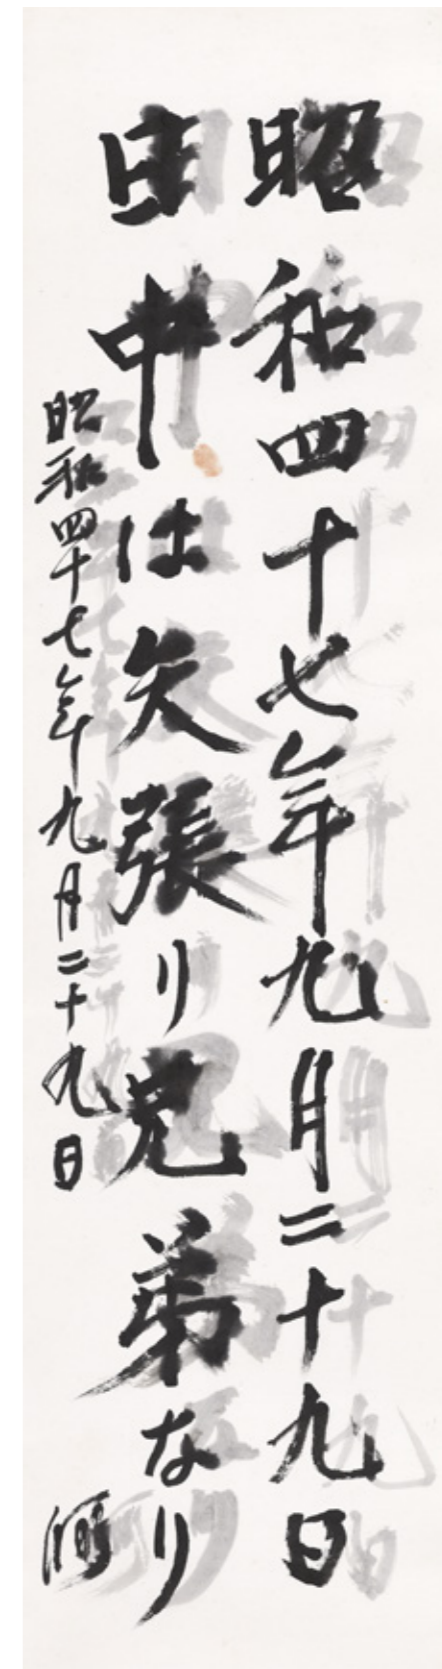 昭和四十七年九月二十九日
日中は矢張り兄弟なり
昭和四十七年九月二十九日